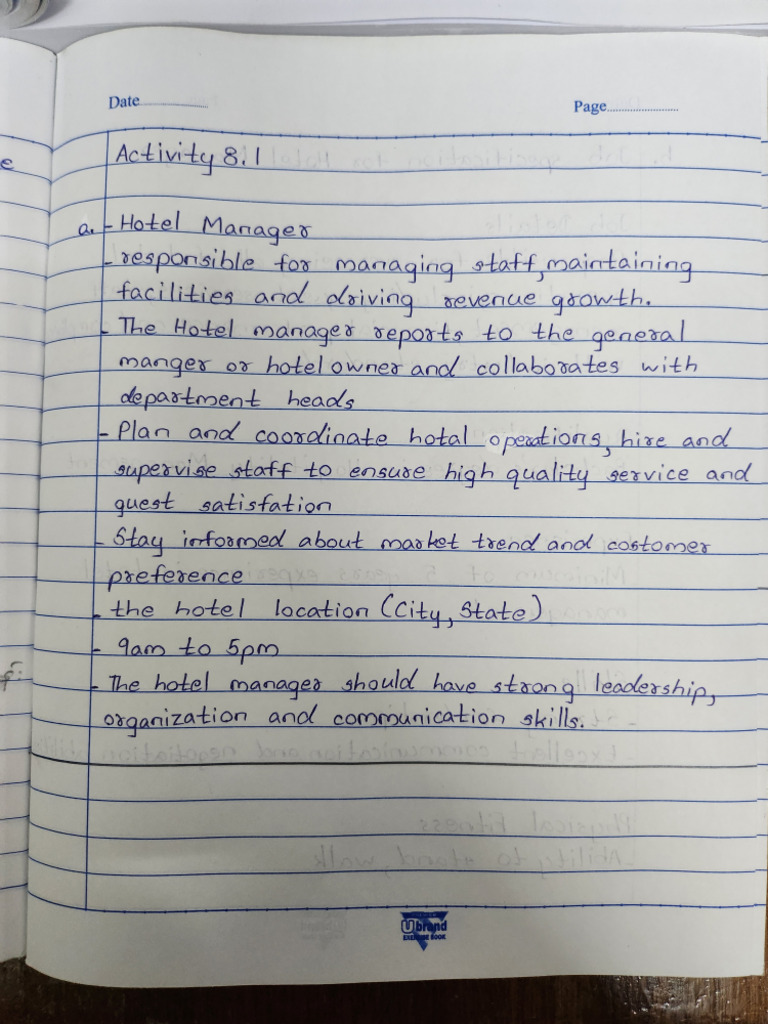 Date
Page
Activity 8.1
e
a. - Hotel Manager
- responsible for managing staff, maintaining
facilities and driving revenue growth.
- The Hotel manager reports to the general
manger or hotel owner and collaborates with
department heads
- Plan and coordinate hotal operations, hire and
supervise staff to ensure high quality service and
guest satisfation
- Stay informed about market trend and costomer
preference
- the hotel location (City, State)
- 9am to 5pm
- The hotel manager should have strong leadership,
organization and communication skills.
Ubrand
EXERCISE BOOK